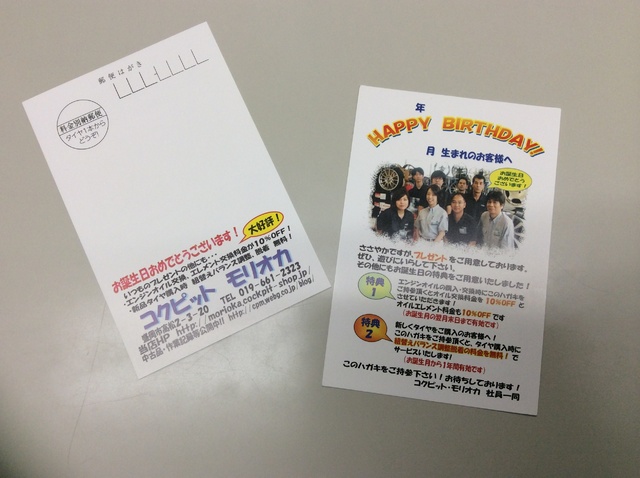 郵便はがき
料金別納郵便
タイヤ1本から
どうぞ!
お誕生日おめでとうございます!
大好評!
いつものプレゼントの他にも・・
・エンジンオイル交換、エレメント交換料金が10%OFF!
・新品タイヤ購入時 組替えバランス調整、脱着 無料!
コクピット モリオカ
盛岡市高松2-3-20 TEL 019-661-2323
当店HP http://morioka.cockpit-shop.jp/
中古品・作業記録等公開中!! http://cpm.webg.co.jp/blog/
年
HAPPY BIRTHDAY!
月 生まれのお客様へ
お誕生日
おめでとう
ございます!
ささやかですが プレゼント をご用意しております。
ぜひ、遊びにいらして下さい。
その他にもお誕生日の特典をご用意いたしました!
特典
1
エンジンオイルの購入・交換時にこのハガキを
ご持参頂くとオイル交換料金を 10%OFF と
させていただきます!
オイルエレメント料金も10%OFF です
(お誕生月の翌月末日まで有効です)
特典
2
新しくタイヤをご購入のお客様へ!
このハガキをご持参頂くと、タイヤ購入時に
組替えバランス調整脱着の料金を無料! で
サービスいたします!
(お誕生月から1年間有効です)
このハガキをご持参下さい! お待ちしております!
コクピット・モリオカ 社員一同